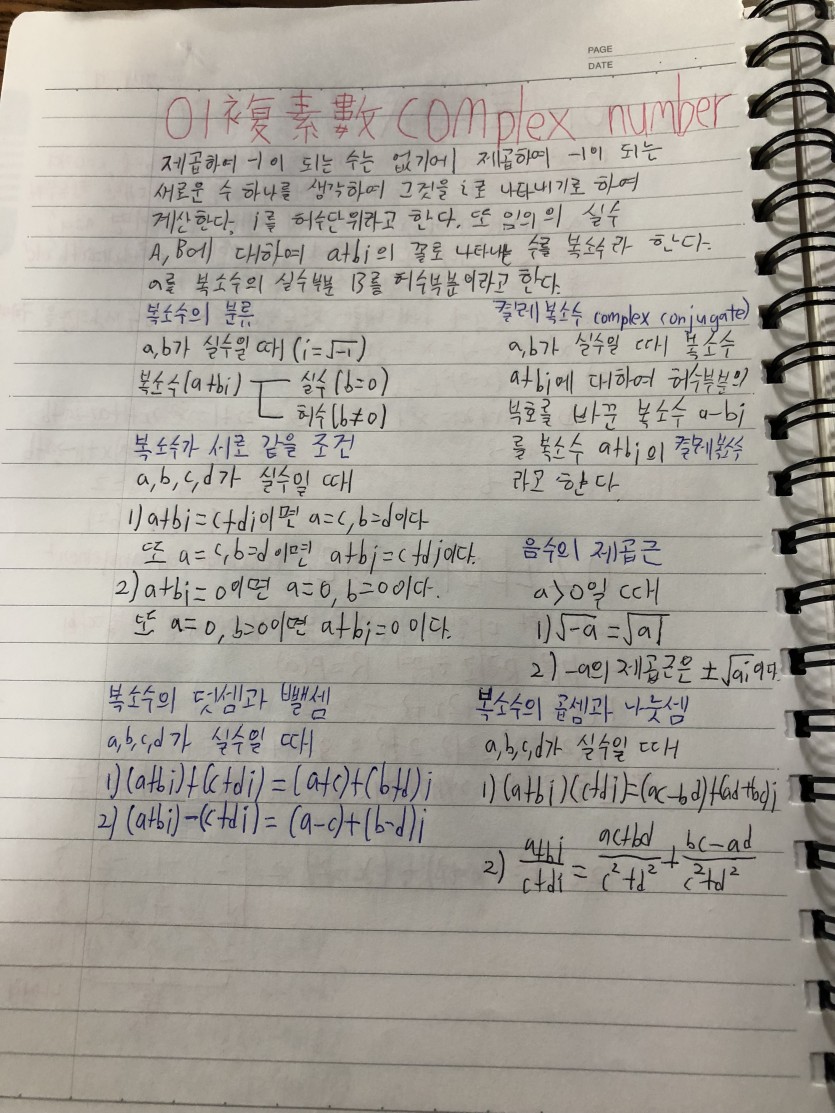 PAGE
DATE
01 複素數 complex number
제곱하여 -1이 되는 수는 없기에 제곱하여 -1이 되는
새로운 수 하나를 생각하여 그것을 i로 나타내기로 하여
계산한다. i를 허수단위라고 한다. 또 임의의 실수
A, B에 대하여 a+bi의 꼴로 나타내는 수를 복소수라 한다.
a를 복소수의 실수부분 B를 허수부분이라고 한다.
복소수의 분류
a,b가 실수일 때 (i=√-1)
복소수(a+bi) 실수(b=0)
허수(b≠0)
복소수가 서로 같을 조건
a, b, c, d가 실수일 때
1) a+bi=c+di이면 a=c, b=d이다
또 a=c, b=d이면 a+bi=c+di이다.
2) a+bi=0이면 a=0, b=0이다.
또 a=0, b=0이면 a+bi=0이다.
켤레복소수 complex conjugate)
a,b가 실수일 때 복소수
a+bi에 대하여 허수부분의
부호를 바꾼 복소수 a-bi
를 복소수 a+bi의 켤레복소수
라고 한다.
음수의 제곱근
a>0일 때
1) √-a = √ai
2) -a의 제곱근은 ±√ai이다.
복소수의 덧셈과 뺄셈
a,b,c,d가 실수일 때
1) (a+bi)+(c+di)=(a+c)+(b+d)i
2) (a+bi)-(c+di)=(a-c)+(b-d)i
복소수의 곱셈과 나눗셈
a,b,c,d가 실수일 때
1) (a+bi)(c+di)=(ac-bd)+(ad+bc)i
2) (a+bi)/(c+di) = (ac+bd)/(c²+d²) + (bc-ad)/(c²+d²)